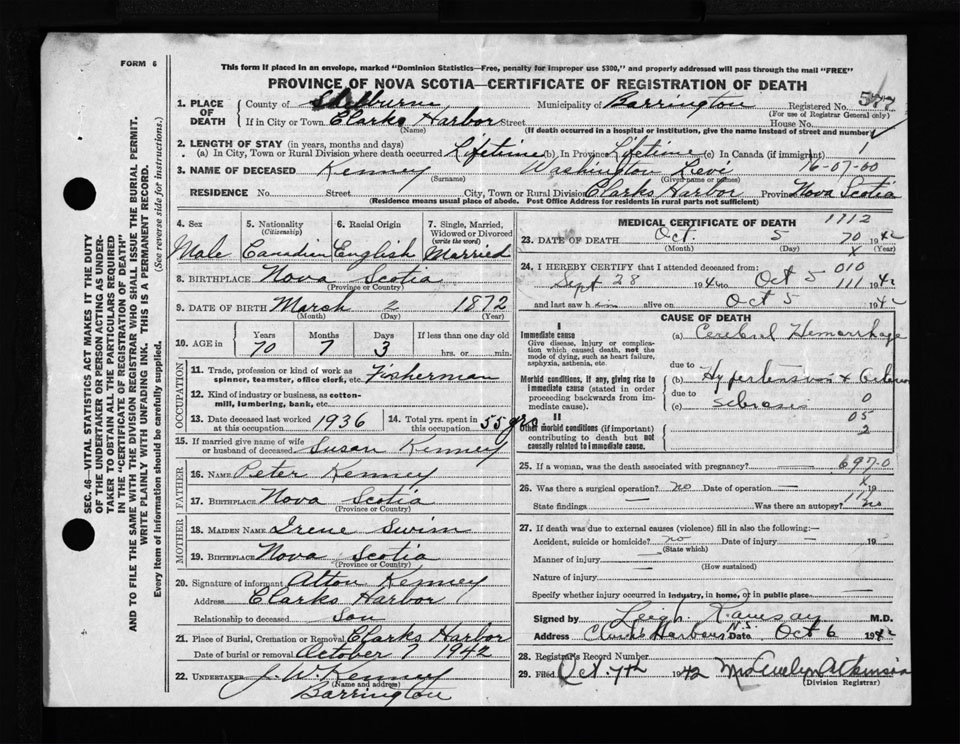 FORM 6
This form if placed in an envelope, marked "Dominion Statistics—Free, penalty for improper use $300," and properly addressed will pass through the mail "FREE"
PROVINCE OF NOVA SCOTIA—CERTIFICATE OF REGISTRATION OF DEATH
SEC. 46—VITAL STATISTICS ACT MAKES IT THE DUTY
OF THE UNDERTAKER OR PERSON ACTING AS UNDER-
TAKER TO OBTAIN ALL THE PARTICULARS REQUIRED
IN THE "CERTIFICATE OF REGISTRATION OF DEATH"
AND TO FILE THE SAME WITH THE DIVISION REGISTRAR WHO SHALL ISSUE THE BURIAL PERMIT.
WRITE PLAINLY WITH UNFADING INK. THIS IS A PERMANENT RECORD.
Every item of Information should be carefully supplied. (See reverse side for instructions.)
1. PLACE OF DEATH County of Shelburne Municipality of Barrington Registered No.
(For use of Registrar General only)
If in City or Town Clarks Harbor Street House No.
(Name) (If death occurred in a hospital or institution, give the name instead of street and number)
2. LENGTH OF STAY (in years, months and days)
(a) In City, Town or Rural Division where death occurred Lifetime (b) In Province Lifetime (c) In Canada (if immigrant) 1
3. NAME OF DECEASED Kenney Washington Levi 16-07-60
(Surname) (Given name or names)
RESIDENCE No. Street City, Town or Rural Division Clarks Harbor Province Nova Scotia
(Residence means usual place of abode. Post Office Address for residents in rural parts not sufficient)
4. Sex 5. Nationality (Citizenship) 6. Racial Origin 7. Single, Married, Widowed or Divorced (write the word)
Male Canadian English Married
8. BIRTHPLACE Nova Scotia
(Province or Country)
9. DATE OF BIRTH March 2 1872
(Month) (Day) (Year)
10. AGE in Years Months Days If less than one day old
70 7 3 hrs. or min.
OCCUPATION
11. Trade, profession or kind of work as Fisherman
spinner, teamster, office clerk, etc.
12. Kind of industry or business, as cotton-
mill, lumbering, bank, etc.
13. Date deceased last worked at this occupation 1936 14. Total yrs. spent in this occupation 55 yrs
15. If married give name of wife or husband of deceased Susan Kenney
FATHER
16. NAME Peter Kenney
17. BIRTHPLACE Nova Scotia
(Province or Country)
MOTHER
18. MAIDEN NAME Irene Swim
19. BIRTHPLACE Nova Scotia
(Province or Country)
20. Signature of informant Alton Kenney
Address Clarks Harbor
Relationship to deceased Son
21. Place of Burial, Cremation or Removal Clarks Harbor
Date of burial or removal October 7 1942
22. UNDERTAKER J. W. Kenney
(Name and address)
Barrington
MEDICAL CERTIFICATE OF DEATH 1112
23. DATE OF DEATH Oct 5 70 1942
(Month) (Day) x (Year)
24. I HEREBY CERTIFY that I attended deceased from: 010
Sept 28 1942 to Oct 5 111 1942
and last saw him alive on Oct 5 1942
CAUSE OF DEATH
I
Immediate cause (a) Cerebral Hemorrhage
Give disease, injury or complica-
tion which caused death, not the
mode of dying, such as heart failure,
asphyxia, asthenia, etc.
due to
Morbid conditions, if any, giving rise to
immediate cause (stated in order
proceeding backwards from im-
mediate cause).
(b) Hypertension +
due to
(c) 0
II
05
Other morbid conditions (if important)
contributing to death but not
causally related to immediate cause.
2
25. If a woman, was the death associated with pregnancy? 697-0
26. Was there a surgical operation? no Date of operation — x 19
State findings — Was there an autopsy? no
27. If death was due to external causes (violence) fill in also the following:
Accident, suicide or homicide? no Date of injury — 19
(State which)
Manner of injury —
(How sustained)
Nature of injury —
Specify whether injury occurred in industry, in home, or in public place —
Signed by Leigh Ramsay M.D.
Address Clarks Harbour N.S. Date Oct 6 1942
28. Registrar's Record Number
29. Filed Oct. 7th 1942 Mrs Evelyn Atkinson
(Division Registrar)